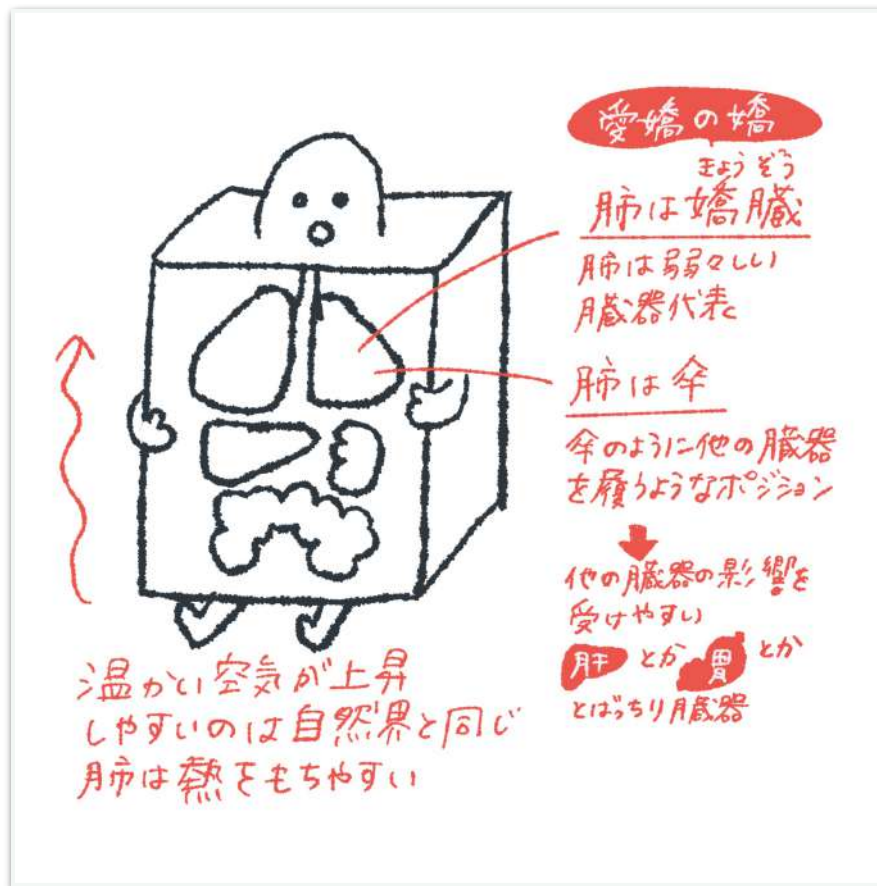 愛嬌の嬌
きょうぞう
肺は嬌臓
肺は弱々しい
臓器代表
肺は傘
傘のように他の臓器
を履うようなポジション
他の臓器の影響を
受けやすい
肝とか胃とか
とばっちり臓器
温かい空気が上昇
しやすいのは自然界と同じ
肺は熱をもちやすい